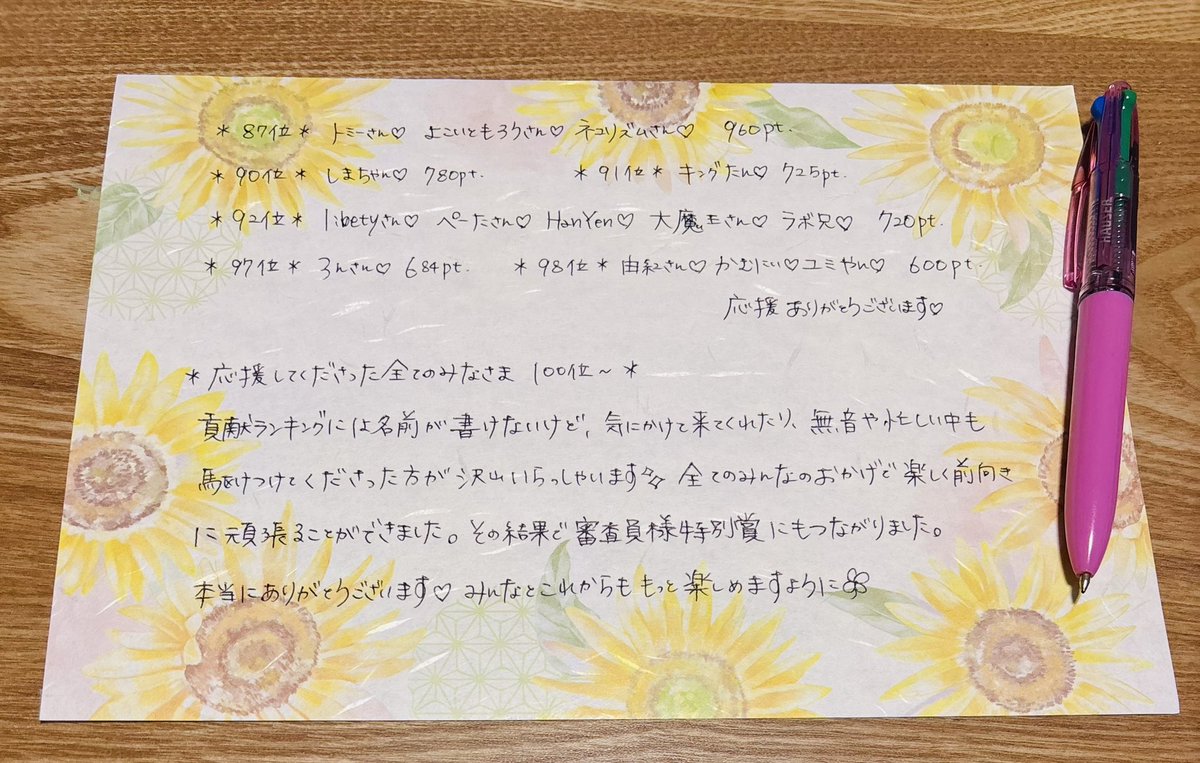 *87位* トミーさん♡ よこいともろうさん♡ ネコリズムさん♡ 960pt.
*90位* しまちゃん♡ 780pt. *91位* キングたん♡ 725pt.
*92位* libetyさん♡ ぺーたさん♡ HanYen♡ 大魔王さん♡ ラボ兄♡ 720pt.
*97位* ろんさん♡ 684pt. *98位* 由紅さん♡ かむにい♡ユミやん♡ 600pt.
応援ありがとうございます♡
*応援してくださった全てのみなさま 100位〜*
貢献ランキングには名前が書けないけど、気にかけて来てくれたり、無音や忙しい中も
駆けつけてくださった方が沢山いらっしゃいます✨ 全てのみんなのおかげで楽しく前向き
に頑張ることができました。その結果で審査員様特別賞にもつながりました。
本当にありがとうございます♡ みんなとこれからももっと楽しめますように
HAUSER